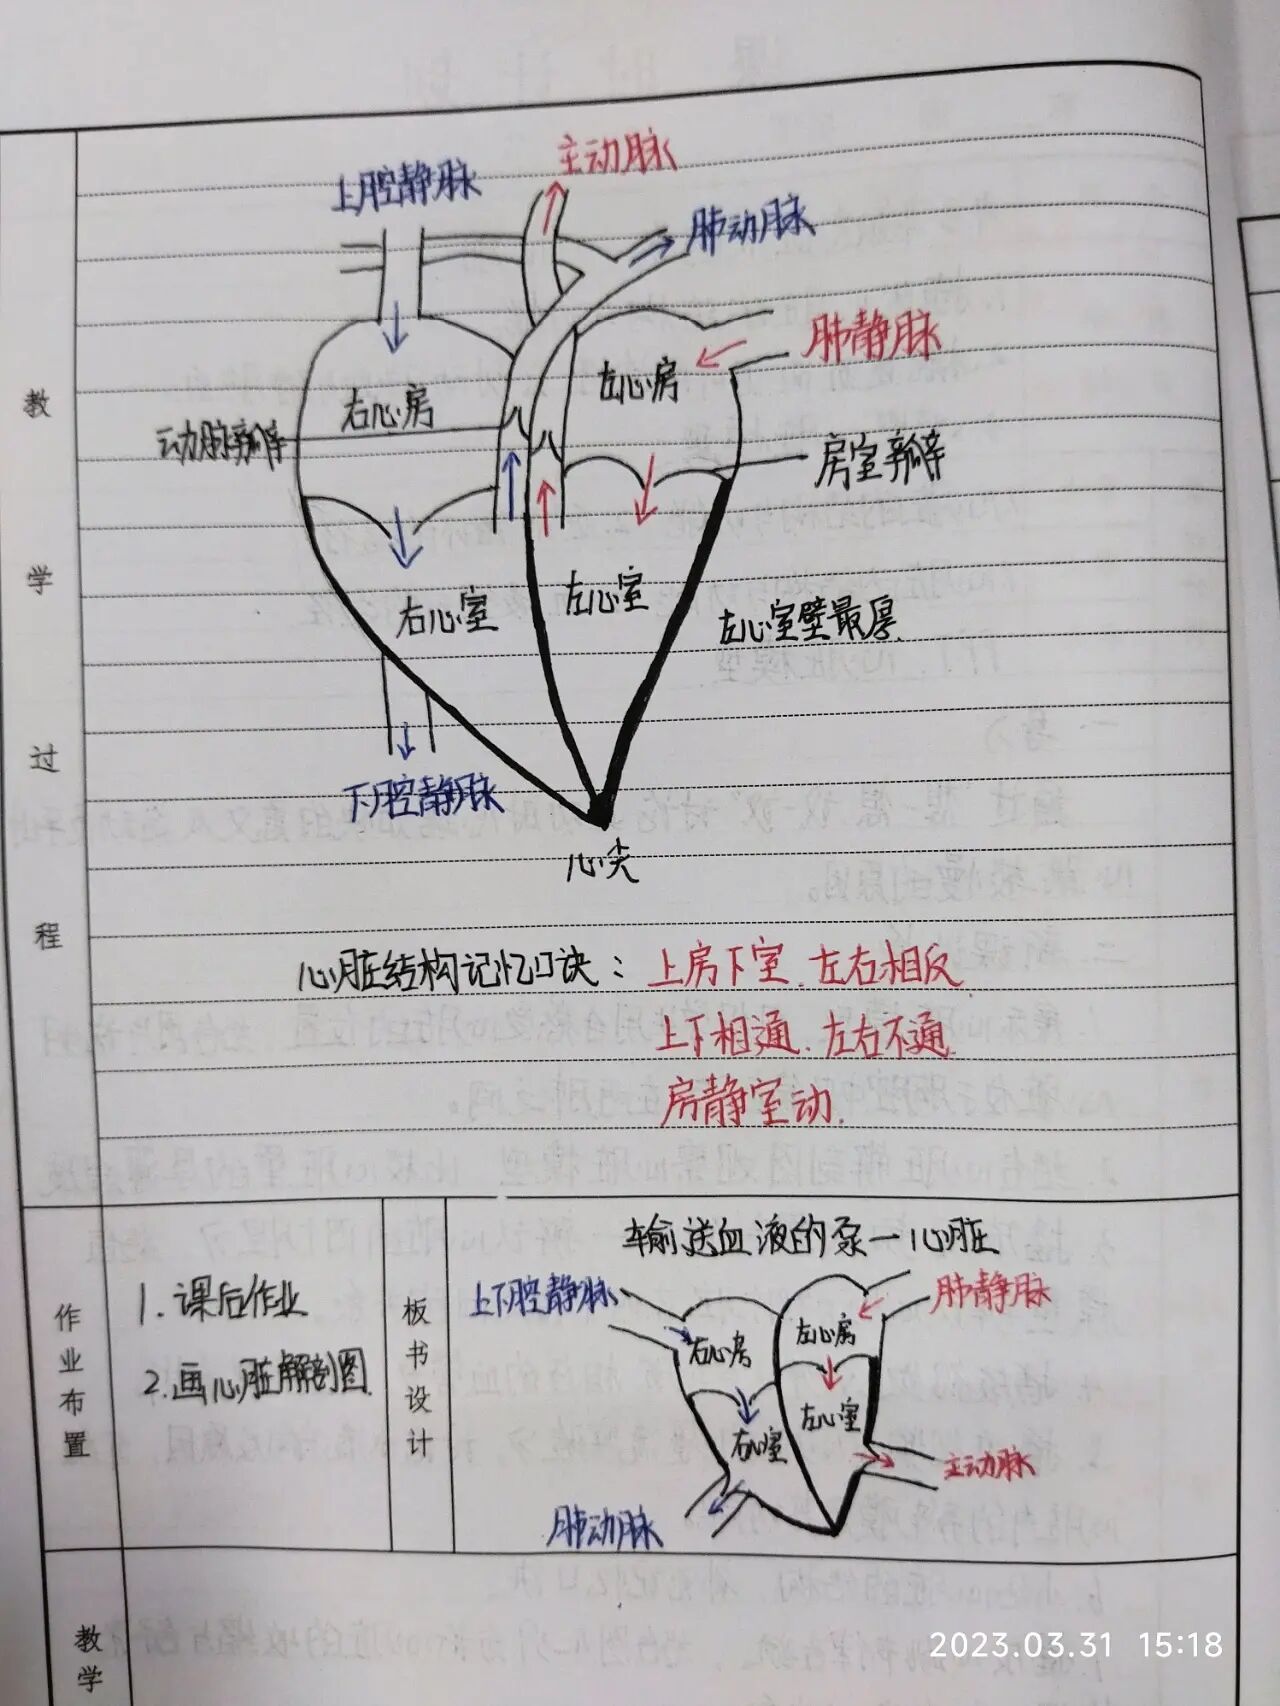 主动脉
上腔静脉
肺动脉
肺静脉
左心房
右心房
动脉瓣
房室瓣
左心室
右心室
左心室壁最厚
下腔静脉
心尖
教学过程
心脏结构记忆口诀：上房下室、左右相反
上下相通、左右不通
房静室动.
作业布置
1.课后作业
2.画心脏解剖图
板书设计
输送血液的泵—心脏
上下腔静脉
肺静脉
左心房
右心房
左心室
右心室
主动脉
肺动脉
教学
2023.03.31 15:18